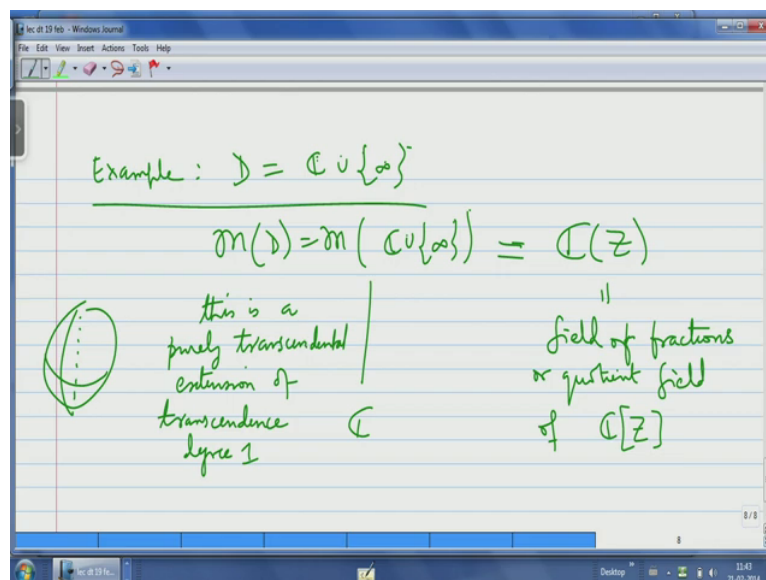 lec dt 19 feb - Windows Journal
File Edit View Insert Actions Tools Help
Example : D = ℂ ∪ {∞}
𝔐(D) = 𝔐(ℂ∪{∞}) = ℂ(Z)
this is a
purely transcendental
extension of
transcendence
degree 1
ℂ
||
field of fractions
or quotient field
of ℂ[Z]
8/8
8
lec dt 19 fe...
Desktop
11:43
21-02-2014